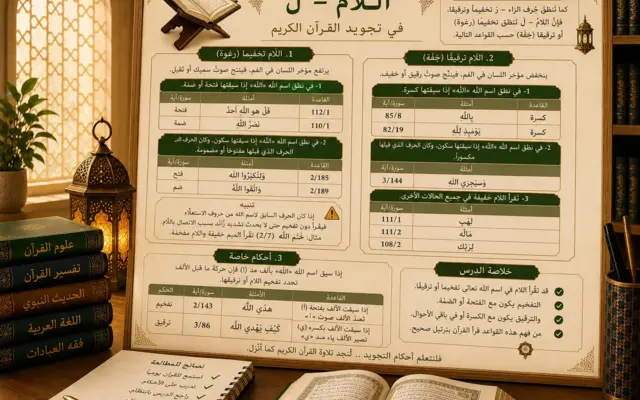 اللام – ل
في تجويد القرآن الكريم
كما تُنطق حُرف الزاء – رَ تفخيماً وترقيقا.
فإنَّ اللامُ – ل تنطق تفخيماً (رغوة)
أو ترقيقا (خِفّة) حسب القواعد التالية.
1. اللام تفخيما (رغوة)
يرتفع مؤخر اللسان في الفم، فينتج صوتٌ سميك أو ثقيل.
1- في نطق اسم الله «الله» إذا سبقتها فتحة أو ضمة.
القاعدة أمثلة سورة/آية
فتحة قُل هو اللهِ أحدٌ 112/1
ضمة نصْرُ اللهِ 110/1
2- في نطق اسم الله «الله» إذا سبقتها سكون، وكان الحرف
الحرف الذي قبلها مفتوحًا أو مضمومة.
القاعدة أمثلة سورة/آية
فتح وَلِتُكَبِّرُوا اللهِ 2/185
ضم وَاتَّقُوا اللهَ 2/189
تنبيه
إذا كان الحرف السابق لاسم الله من حروف الاستعلاء
فيقرأ دون تفخيم حتى لا يحدث تشديد زائد بسبب الاتصال باللام.
مثال: خَتَم الله (2/7) تقرأ الميم خفيفة واللام مفخمة.
2. اللام ترقيقًا (خِفّة)
ينخفض مؤخر اللسان في الفم، فينتج صوتٌ رقيق أو خفيف.
1- في نطق اسم الله «الله» إذا سبقتها كسرة.
القاعدة أمثلة سورة/آية
كسرة بِاللهِ 85/8
كسرة يَوْمَئِذٍ لِلَّهِ 82/19
2- في نطق اسم الله «الله» إذا سبقتها سكون، وكان الحرف الذي قبلها
مكسوراً.
وَسَيَجزِي اللهِ 3/144
3- تُقرأ اللام خفيفة في جميع الحالات الأخرى
أمثلة سورة/آية
لَهَبٍ 111/1
مَالُه 111/2
لِرَبِّكَ 108/2
3. أحكام خاصة
إذا سبق اسم الله «الله» بألف مد (ا) فإن حركة ما قبل الألف
تحدد تفخيم اللام أو ترقيقها.
القاعدة الأمثلة سورة/آية الحكم
إذا سبقت الألف بفتحة (ا) هدَى الله 2/143 تفخيم
تُمدّ الألف صوت «ا»
إذا سبقت الألف بكسره (ي) كَيْفَ يَهْدِي الله 3/86 ترقيق
تصير الألف ياء مد «ي»
خلاصة الدرس
قد تقرأ اللام في اسم الله تعالى تفخيما أو ترقيقًا.
التفخيم يكون مع الفتحة أو الضمة.
والترقيق يكون مع الكسرة أو في باقي الأحوال.
من فهم هذه القواعد قرأ القرآن بترتيل صحيح.
فلنتعلم أحكام التجويد .. لنجد تلاوة القرآن الكريم كما أُنزل.
علوم القرآن
تفسير القرآن
الحديث النبوي
اللغة العربية
فقه العبادات
نصائح للمطالعة
استمع للقرآن يوميا
تدرب على الأحكام
راجع الدرس بانتظام